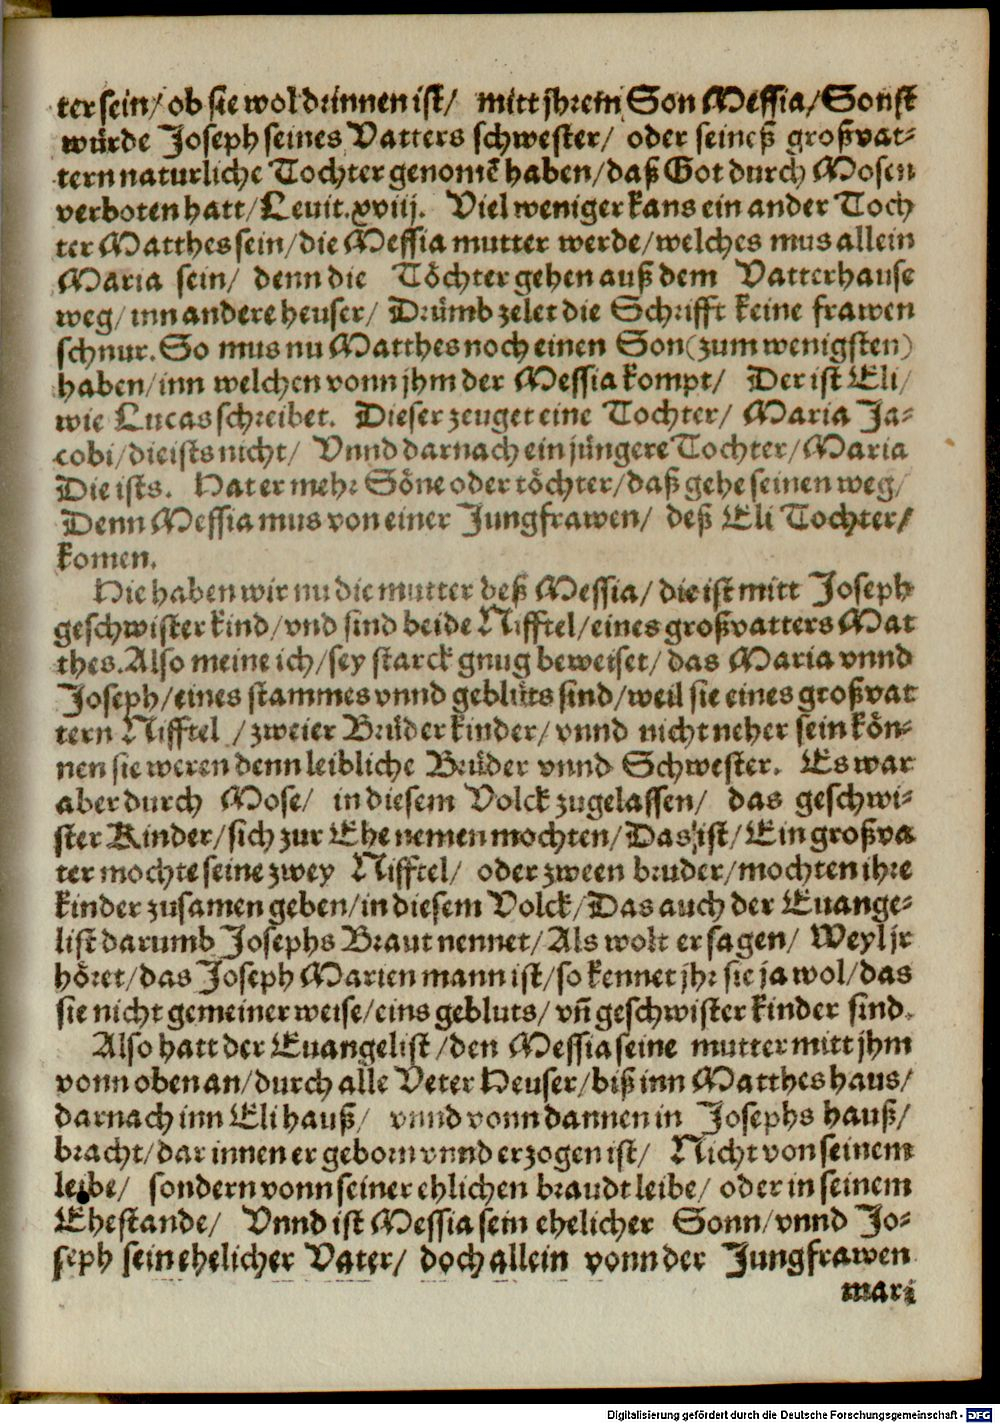 ter sein/ ob sie wol drinnen ist/ mitt jhrem Son Messia/ Sonst
würde Joseph seines Vatters schwester/ oder seineß großvat-
tern naturliche Tochter genomẽ haben/ daß Got durch Mosen
verboten hatt/ Leuit. xviij. Viel weniger kans ein ander Toch
ter Matthes sein/ die Messia mutter werde/ welches mus allein
Maria sein/ denn die Töchter gehen auß dem Vatterhause
weg/ inn andere heuser/ Drümb zelet die Schrifft keine frawen
schnur. So mus nu Matthes noch einen Son (zum wenigsten)
haben/ inn welchen vonn jhm der Messia kompt/ Der ist Eli/
wie Lucas schreibet. Dieser zeuget eine Tochter/ Maria Ja-
cobi/ die ists nicht/ Vnnd darnach ein jüngere Tochter/ Maria
Die ists. Hat er mehr Söne oder töchter/ daß gehe seinen weg/
Denn Messia mus von einer Jungfrawen/ deß Eli Tochter/
komen.
Hie haben wir nu die mutter deß Messia/ die ist mitt Joseph
geschwister kind/ vnd sind beide Nifftel/ eines großvatters Mat
thes. Also meine ich/ sey starck gnug beweiset/ das Maria vnnd
Joseph/ eines stammes vnnd geblüts sind/ weil sie eines großvat
tern Nifftel / zweier Brüder kinder/ vnnd nicht neher sein kön-
nen sie weren denn leibliche Brüder vnnd Schwester. Es war
aber durch Mose/ in diesem Volck zugelassen/ das geschwi-
ster Kinder/ sich zur Ehe nemen mochten/ Das ist/ Ein großva
ter mochte seine zwey Nifftel/ oder zween bruder/ mochten ihre
kinder zusamen geben/ in diesem Volck/ Das auch der Euange-
list darumb Josephs Braut nennet/ Als wolt er sagen/ Weyl jr
höret/ das Joseph Marien mann ist/ so kennet jhr sie ja wol/ das
sie nicht gemeiner weise/ eins gebluts/ vñ geschwister kinder sind.
Also hatt der Euangelist/ den Messia seine mutter mitt jhm
vonn oben an/ durch alle Veter Heuser/ biß inn Matthes haus/
darnach inn Eli hauß/ vnnd vonn dannen in Josephs hauß/
bracht/ darinnen er geborn vnnd erzogen ist/ Nicht von seinem
leibe/ sondern vonn seiner ehlichen braudt leibe/ oder in seinem
Ehestande/ Vnnd ist Messia sein ehelicher Sonn/ vnnd Jo-
seph sein ehelicher Vater/ doch allein vonn der Jungfrawen
mari
Digitalisierung gefördert durch die Deutsche Forschungsgemeinschaft - DFG